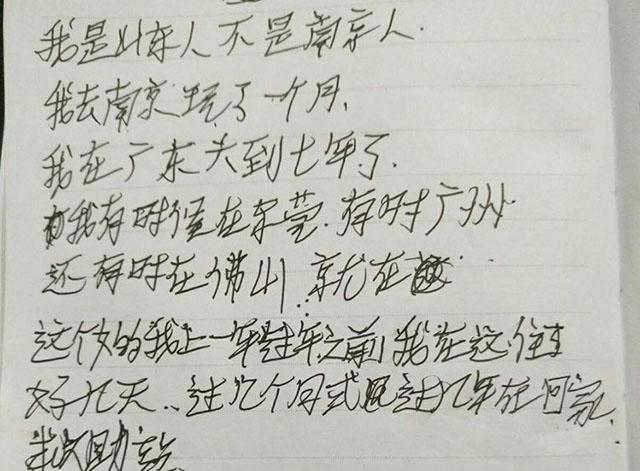 我是山东人不是南京人.
我去南京玩了一个月,
我在广东大到七年了.
我有时候在东莞.有时广州
还有时在佛山..就在
这个的我上一年过年之前我在这住
好几天..过几个月或过几年在回家.
我